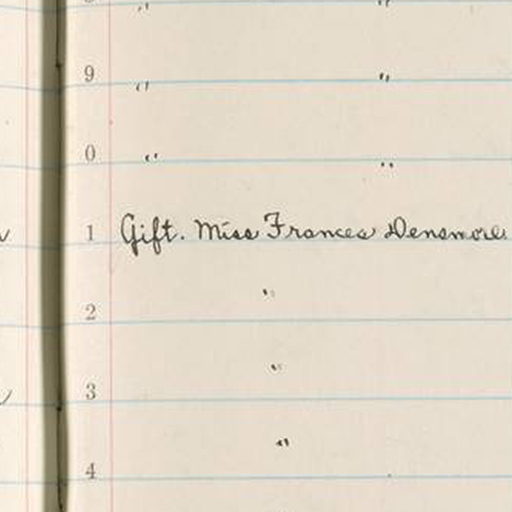 9 " "
0 " "
1 Gift. Miss Frances Densmore
2 "
3 "
4 "